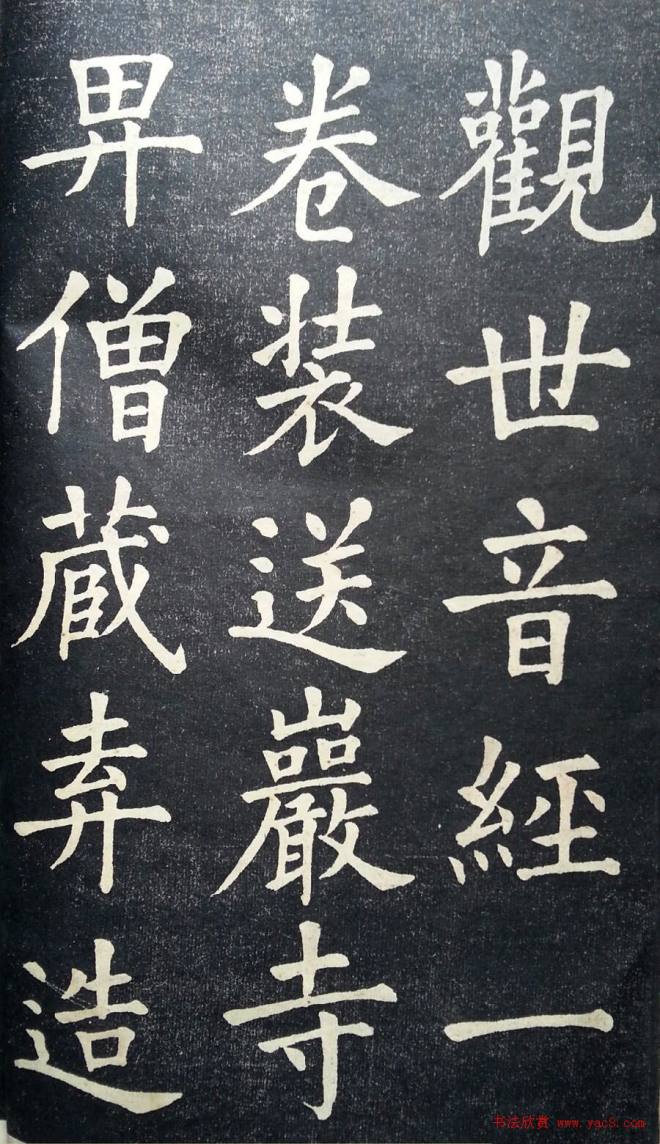 觀世音經一
卷装送巖寺
畀僧蔵弆造
书法欣赏 www.yac8.com